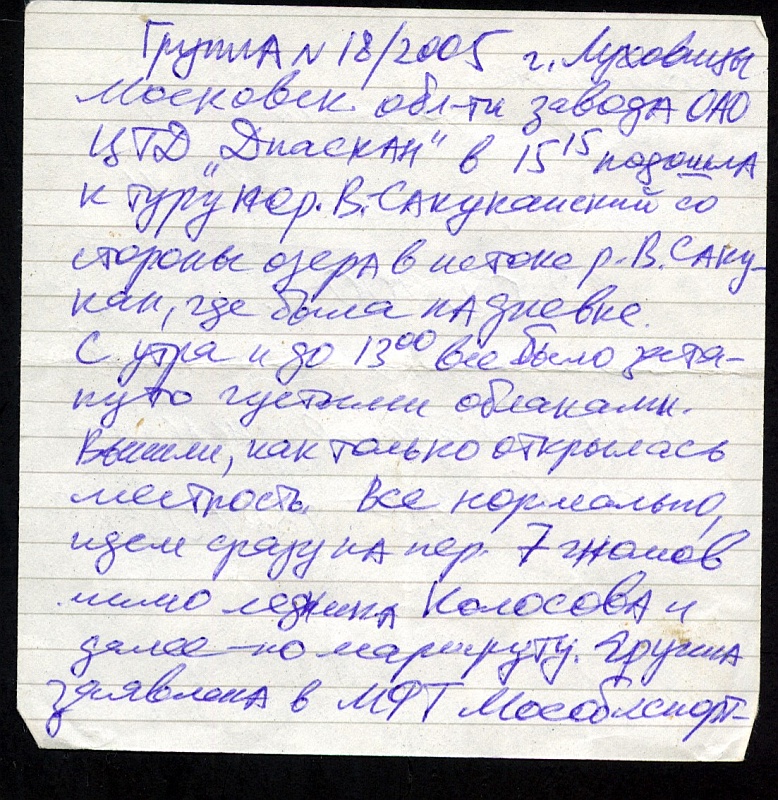 Группа N 18/2005 г. Луховицы
Московск. обл-ти завода ОАО
ЦТД "Диаскан" в 15 15 подошла
к туру пер. В. Сакуканский со
стороны озера в истоке р. В. Саку-
кан, где была на дневке.
С утра и до 13 00 все было затя-
нуто густыми облаками.
Вышли, как только открылась
местность. Все нормально,
идем сразу на пер. 7 гномов
мимо ледника Колосова и
далее по маршруту. Группа
заявлена в МФТ Мособлспорт-